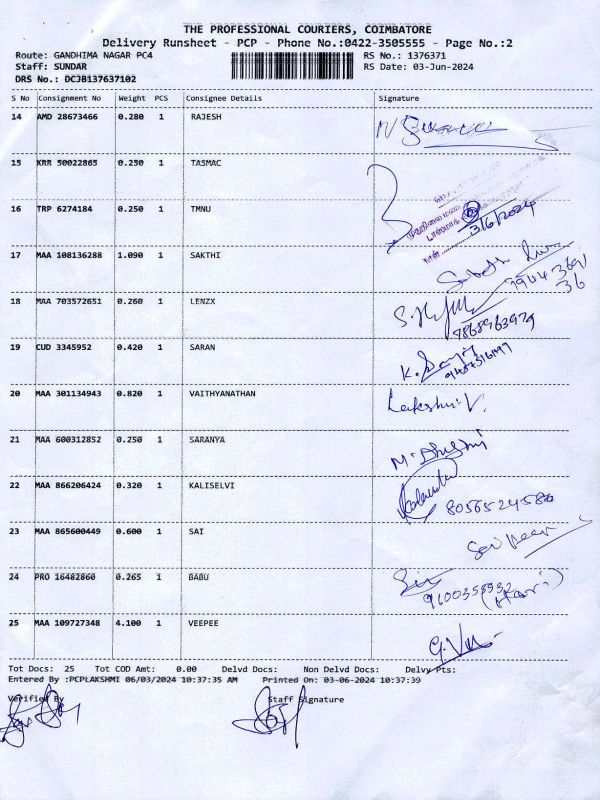 THE PROFESSIONAL COURIERS, COIMBATORE
Delivery Runsheet - PCP - Phone No.:0422-3505555 - Page No.:2
Route: GANDHIMA NAGAR PC4 RS No.: 1376371
Staff: SUNDAR RS Date: 03-Jun-2024
DRS No.: DCJB137637102
S No Consignment No Weight PCS Consignee Details Signature
14 AMD 28673466 0.280 1 RAJESH
15 KRR 50022865 0.250 1 TASMAC
16 TRP 6274184 0.250 1 TMNU 3/6/2024
17 MAA 108136288 1.090 1 SAKTHI
18 MAA 703572651 0.260 1 LENZX
19 CUD 3345952 0.420 1 SARAN
20 MAA 301134943 0.820 1 VAITHYANATHAN Lakshmi.V.
21 MAA 600312852 0.250 1 SARANYA
22 MAA 866206424 0.320 1 KALISELVI 8056524580
23 MAA 865600449 0.600 1 SAI
24 PRO 16482860 0.265 1 BABU
25 MAA 109727348 4.100 1 VEEPEE
Tot Docs: 25 Tot COD Amt: 0.00 Delvd Docs: Non Delvd Docs: Delvy Pts:
Entered By :PCPLAKSHMI 06/03/2024 10:37:35 AM Printed On: 03-06-2024 10:37:39
Verified By Staff Signature